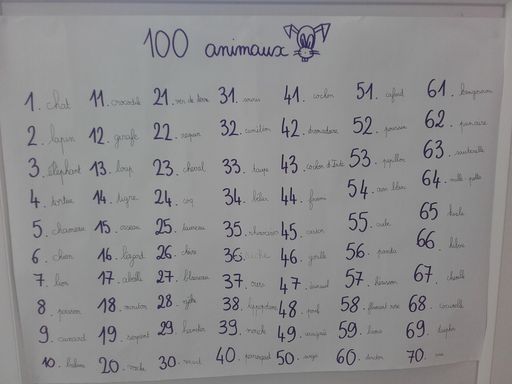 100 animaux
1. chat
2. lapin
3. éléphant
4. tortue
5. chameau
6. chien
7. lion
8. poisson
9. canard
10.
11. crocodile
12. girafe
13. loup
14. tigre
15. oiseau
16. lézard
17. abeille
18. mouton
19. serpent
20. vache
21. ver de terre
22. requin
23. cheval
24. coq
25. taureau
26. chèvre
27. blaireau
28.
29. hamster
30.
31. souris
32. caméléon
33. taupe
34. bélier
35. rhinocéros
36. biche
37. ours
38. hippopotame
39.
40. perroquet
41. cochon
42. dromadaire
43. cochon d'Inde
44. fourmi
45. castor
46. gorille
47. écureuil
48.
49. araignée
50. singe
51. cafard
52.
53. papillon
54.
55.
56. panda
57. hérisson
58. flamant rose
59. lama
60.
61. kangourou
62. punaise
63. sauterelle
64. mille-pattes
65
66. hibou
67. chenille
68. coccinelle
69. dauphin
70.